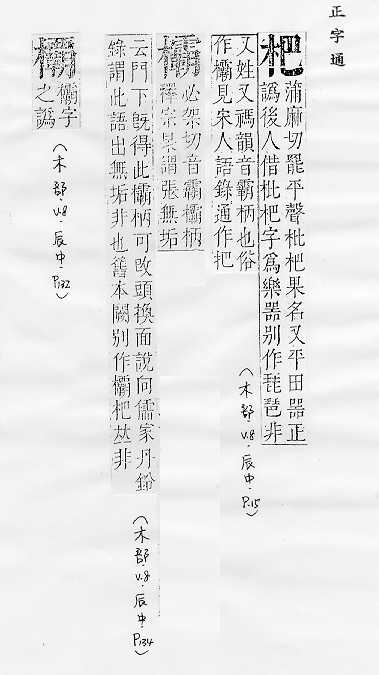 正字通
杷 蒲麻切罷平聲枇杷果名又平田器正
譌後人借枇杷字爲樂器別作琵琶非
又姓又禡韻音霸柄也俗
作欛見宋人語錄通作杷
(木部.v.8.辰中.P.15)
欛 必架切音霸欛柄
禪宗杲謂張無垢
云門下旣得此欛柄可改頭換面說向儒家丹鉛
錄謂此語出無垢非也舊本闕別作欛杷𠀤非
(木部.v.8.辰中.P.134)
欛字
之譌
(木部.v.8.辰中.P.132)